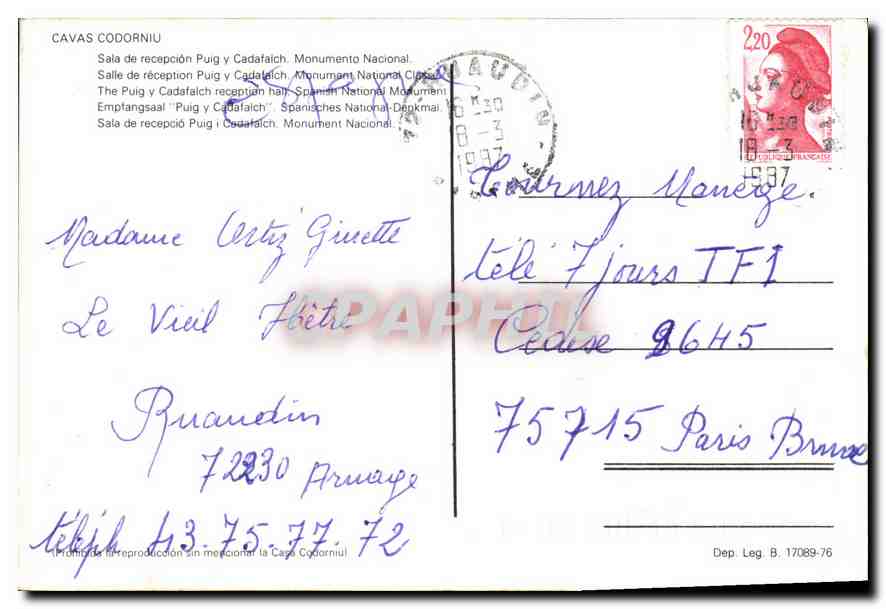 CAVAS CODORNIU
Sala de recepción Puig y Cadafalch. Monumento Nacional.
Salle de réception Puig y Cadafalch. Monument National Classé.
The Puig y Cadafalch reception hall. Spanish National Monument
Empfangsaal "Puig y Cadafalch". Spanisches National-Denkmal.
Sala de recepció Puig i Cadafalch. Monument Nacional.
RUAUDIN
16 H 30
18-3
1987
2,20
RUAUDIN
16 H 30
18-3
1987
REPUBLIQUE FRANÇAISE
Tournez Manège.
télé 7 jours TF1
Cedise 8645
75715 Paris Brune
Madame Ortiz Ginette
Le Vieil Hêtre
Ruaudin
72230 Arnage
téléph 43.75.77.72
CPAPHIL
(Prohibida la reproducción sin mencionar la Casa Codorniu)
Dep. Leg. B. 17089-76